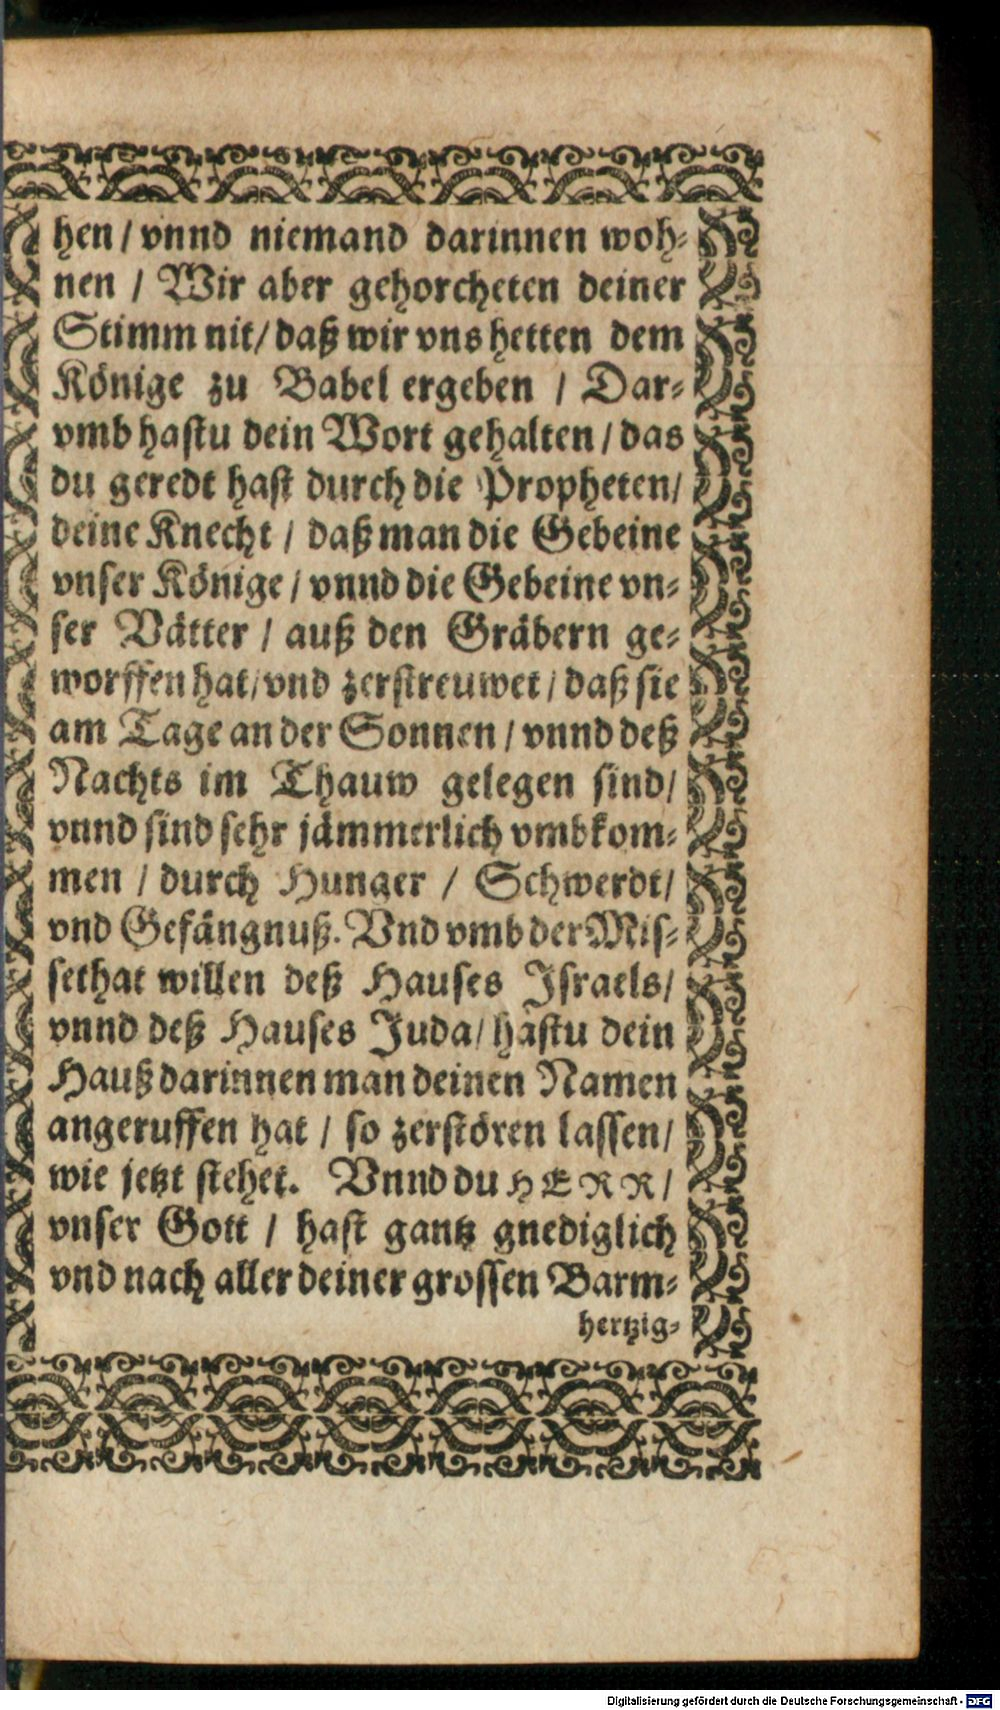 hen / vnnd niemand darinnen woh-
nen / Wir aber gehorcheten deiner
Stimm nit/ daß wir vns hetten dem
Könige zu Babel ergeben / Dar-
vmb hastu dein Wort gehalten / das
du geredt hast durch die Propheten/
deine Knecht / daß man die Gebeine
vnser Könige / vnnd die Gebeine vn-
ser Vätter / auß den Gräbern ge-
worffen hat/ vnd zerstreuwet / daß sie
am Tage an der Sonnen / vnnd deß
Nachts im Thauw gelegen sind/
vnnd sind sehr jämmerlich vmbkom-
men / durch Hunger / Schwerdt/
vnd Gefängnuß. Vnd vmb der Mis-
sethat willen deß Hauses Israels/
vnnd deß Hauses Juda/ hastu dein
Hauß darinnen man deinen Namen
angeruffen hat / so zerstören lassen/
wie jetzt stehet. Vnnd du HERR/
vnser Gott / hast gantz gnediglich
vnd nach aller deiner grossen Barm-
hertzig-
Digitalisierung gefördert durch die Deutsche Forschungsgemeinschaft - DFG